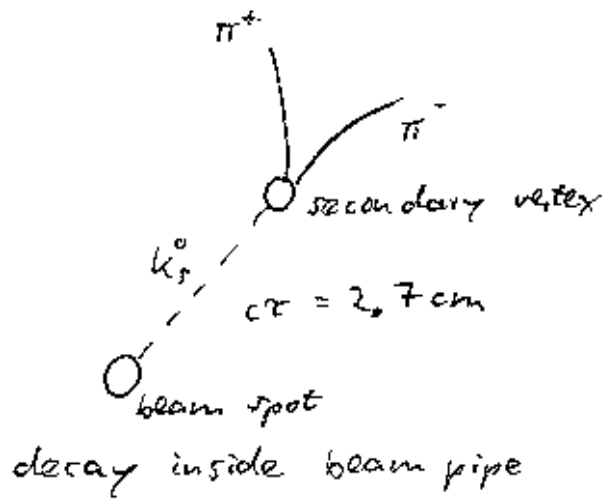 π⁺
π⁻
secondary vertex
K⁰ₛ
cτ = 2.7 cm
beam spot
decay inside beam pipe